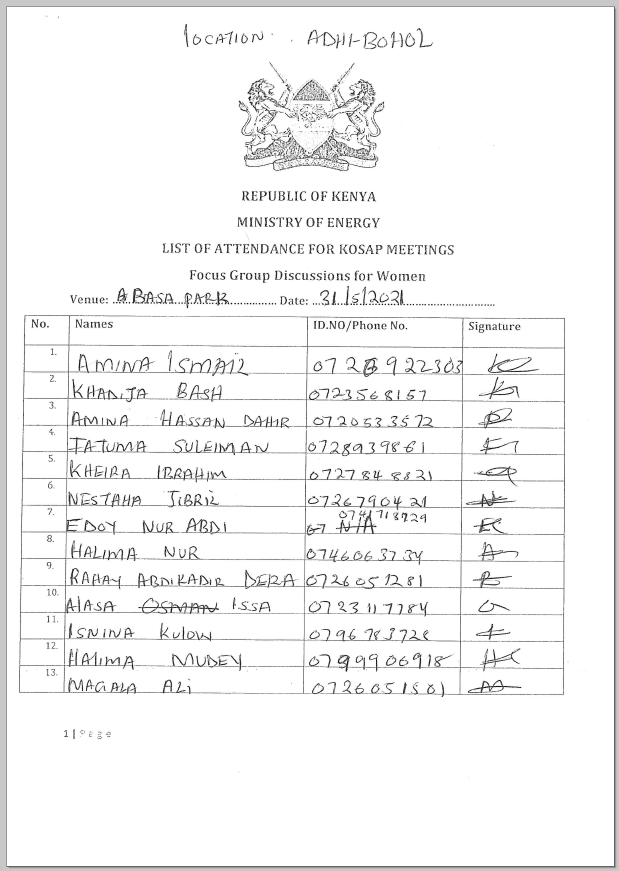 LOCATION. ADHI-BOHOL
REPUBLIC OF KENYA
MINISTRY OF ENERGY
LIST OF ATTENDANCE FOR KOSAP MEETINGS
Focus Group Discussions for Women
Venue: ABASA PARK Date: 31/5/2021
No. Names ID.NO/Phone No. Signature
1. AMINA ISMAIL
2. KHADIJA BASH 0723568157
3. AMINA HASSAN DAHIR 0720533572
4. FATUMA SULEIMAN 0728939861
5. KHEIRA IBRAHIM 0727848821
6. NESTAHA JIBRIL 0726790421
7. EDOY NUR ABDI
8. HALIMA NUR 0746063734
9. RAHAY ABDIKADIR DERA 0726051281
10. AIASA OSMAN ISSA 0723117784
11. ISNINA KULOW 0796783728
12. HALIMA MUDEY 0799906918
13. MAGALA ALI 0726051501
1 | Page